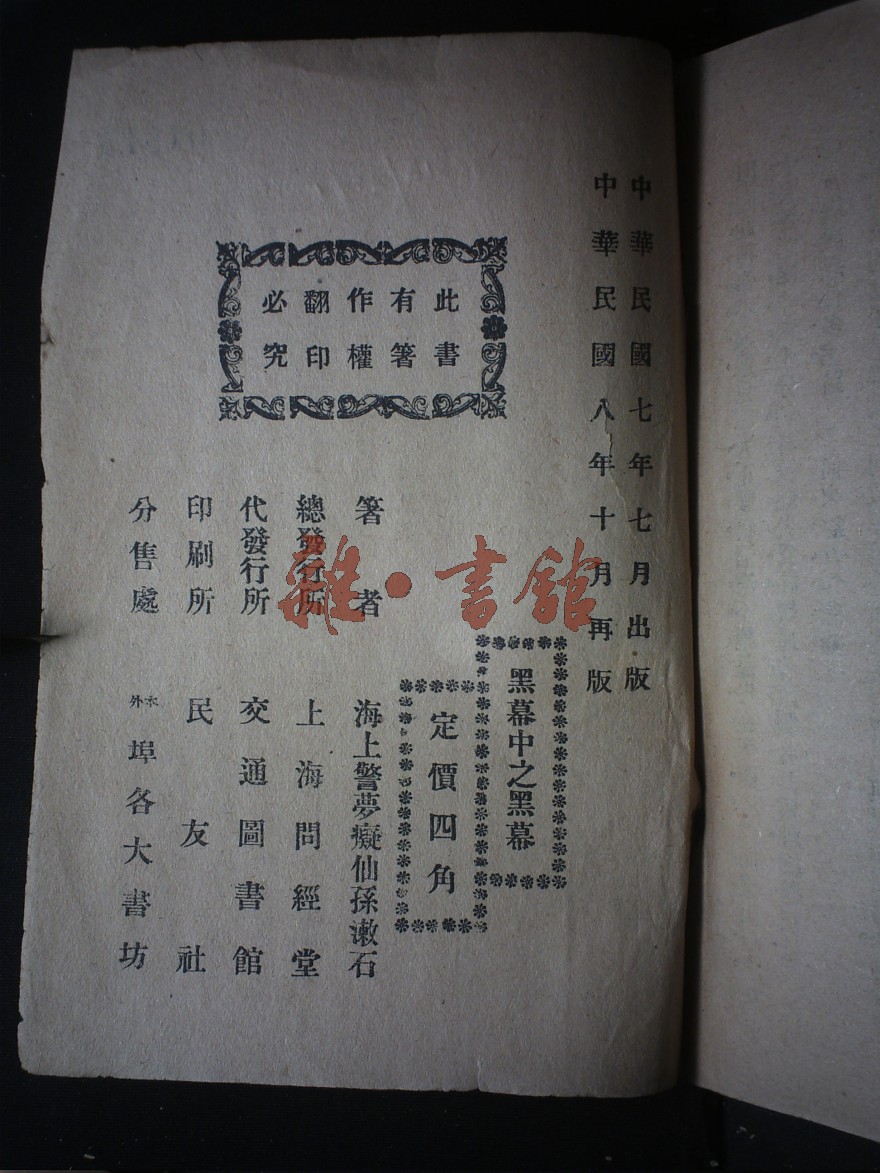 中華民國七年七月出版
中華民國八年十月再版
此書
有箸
作權
翻印
必究
黑幕中之黑幕
定價四角
箸者 海上警夢癡仙孫漱石
總發行所 上海問經堂
代發行所 交通圖書館
印刷所 民友社
分售處 本外埠各大書坊
雜·書館